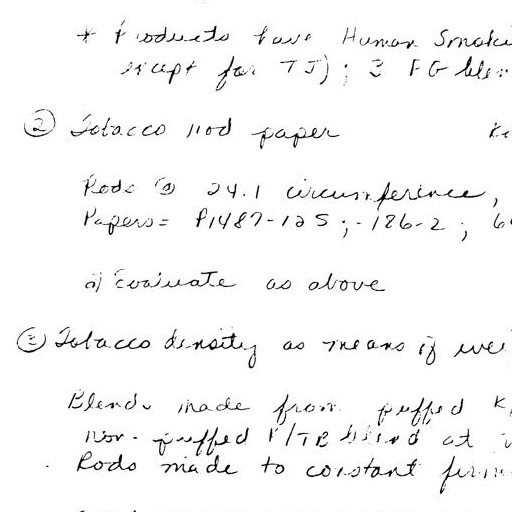 * Products have Human Smoki
except for TJ); 3 FG blen
② Tobacco rod paper
Rods @ 24.1 circumference,
Papers = P1487-125; -126-2; 6
a) Evaluate as above
③ Tobacco density as means of
Blends made from puffed K
non-puffed K/TB blend at
Rods made to constant firm